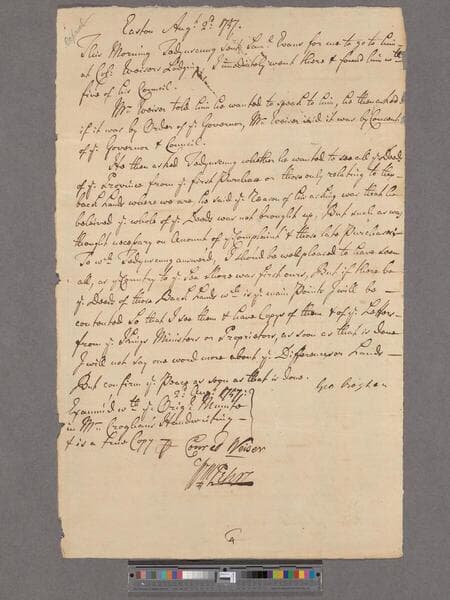 Easton Augt. 2d. 1757.
This Morning Tedyuscung sent Saml. Evans for me to go to him
at Col. Weisers Lodging I immediately went there & found him wth.
five of his Council.
Mr. Weiser told him he wanted to speak to him, he then asked
if it was by Order of ye Governor, Mr. Weiser said it was by Consent
of ye Governor & Council.
He then asked Tedyuscung whether he wanted to see all ye Deeds
of ye Province from ye first Purchase or those only relating to the
back Lands where we are, he said ye Reason of his asking was that he
believed ye whole of ye Deeds was not brought up, But such as was
thought necessary on Account of ye Complaint & those late Purchases
To wch. Tedyuscung answered, I should be well pleased to have seen
all, as ye Country to ye Sea Shore was first ours, But if there be
ye Deeds of those Back Lands wch. is ye main Point I will be
contented so that I see them & have Copys of them & of ye Letters
from ye Kings Ministers or Proprietors, as soon as that is done
I will not say one word more about ye Differences or Lands
But confirm ye Peace as soon as that is done.
Geo Croghan
2d. Augt. 1757.
Examin'd wth. ye Origl. Minute
in Mr. Croghan's Handwriting
& is a true Copy
Conrad Weiser
4